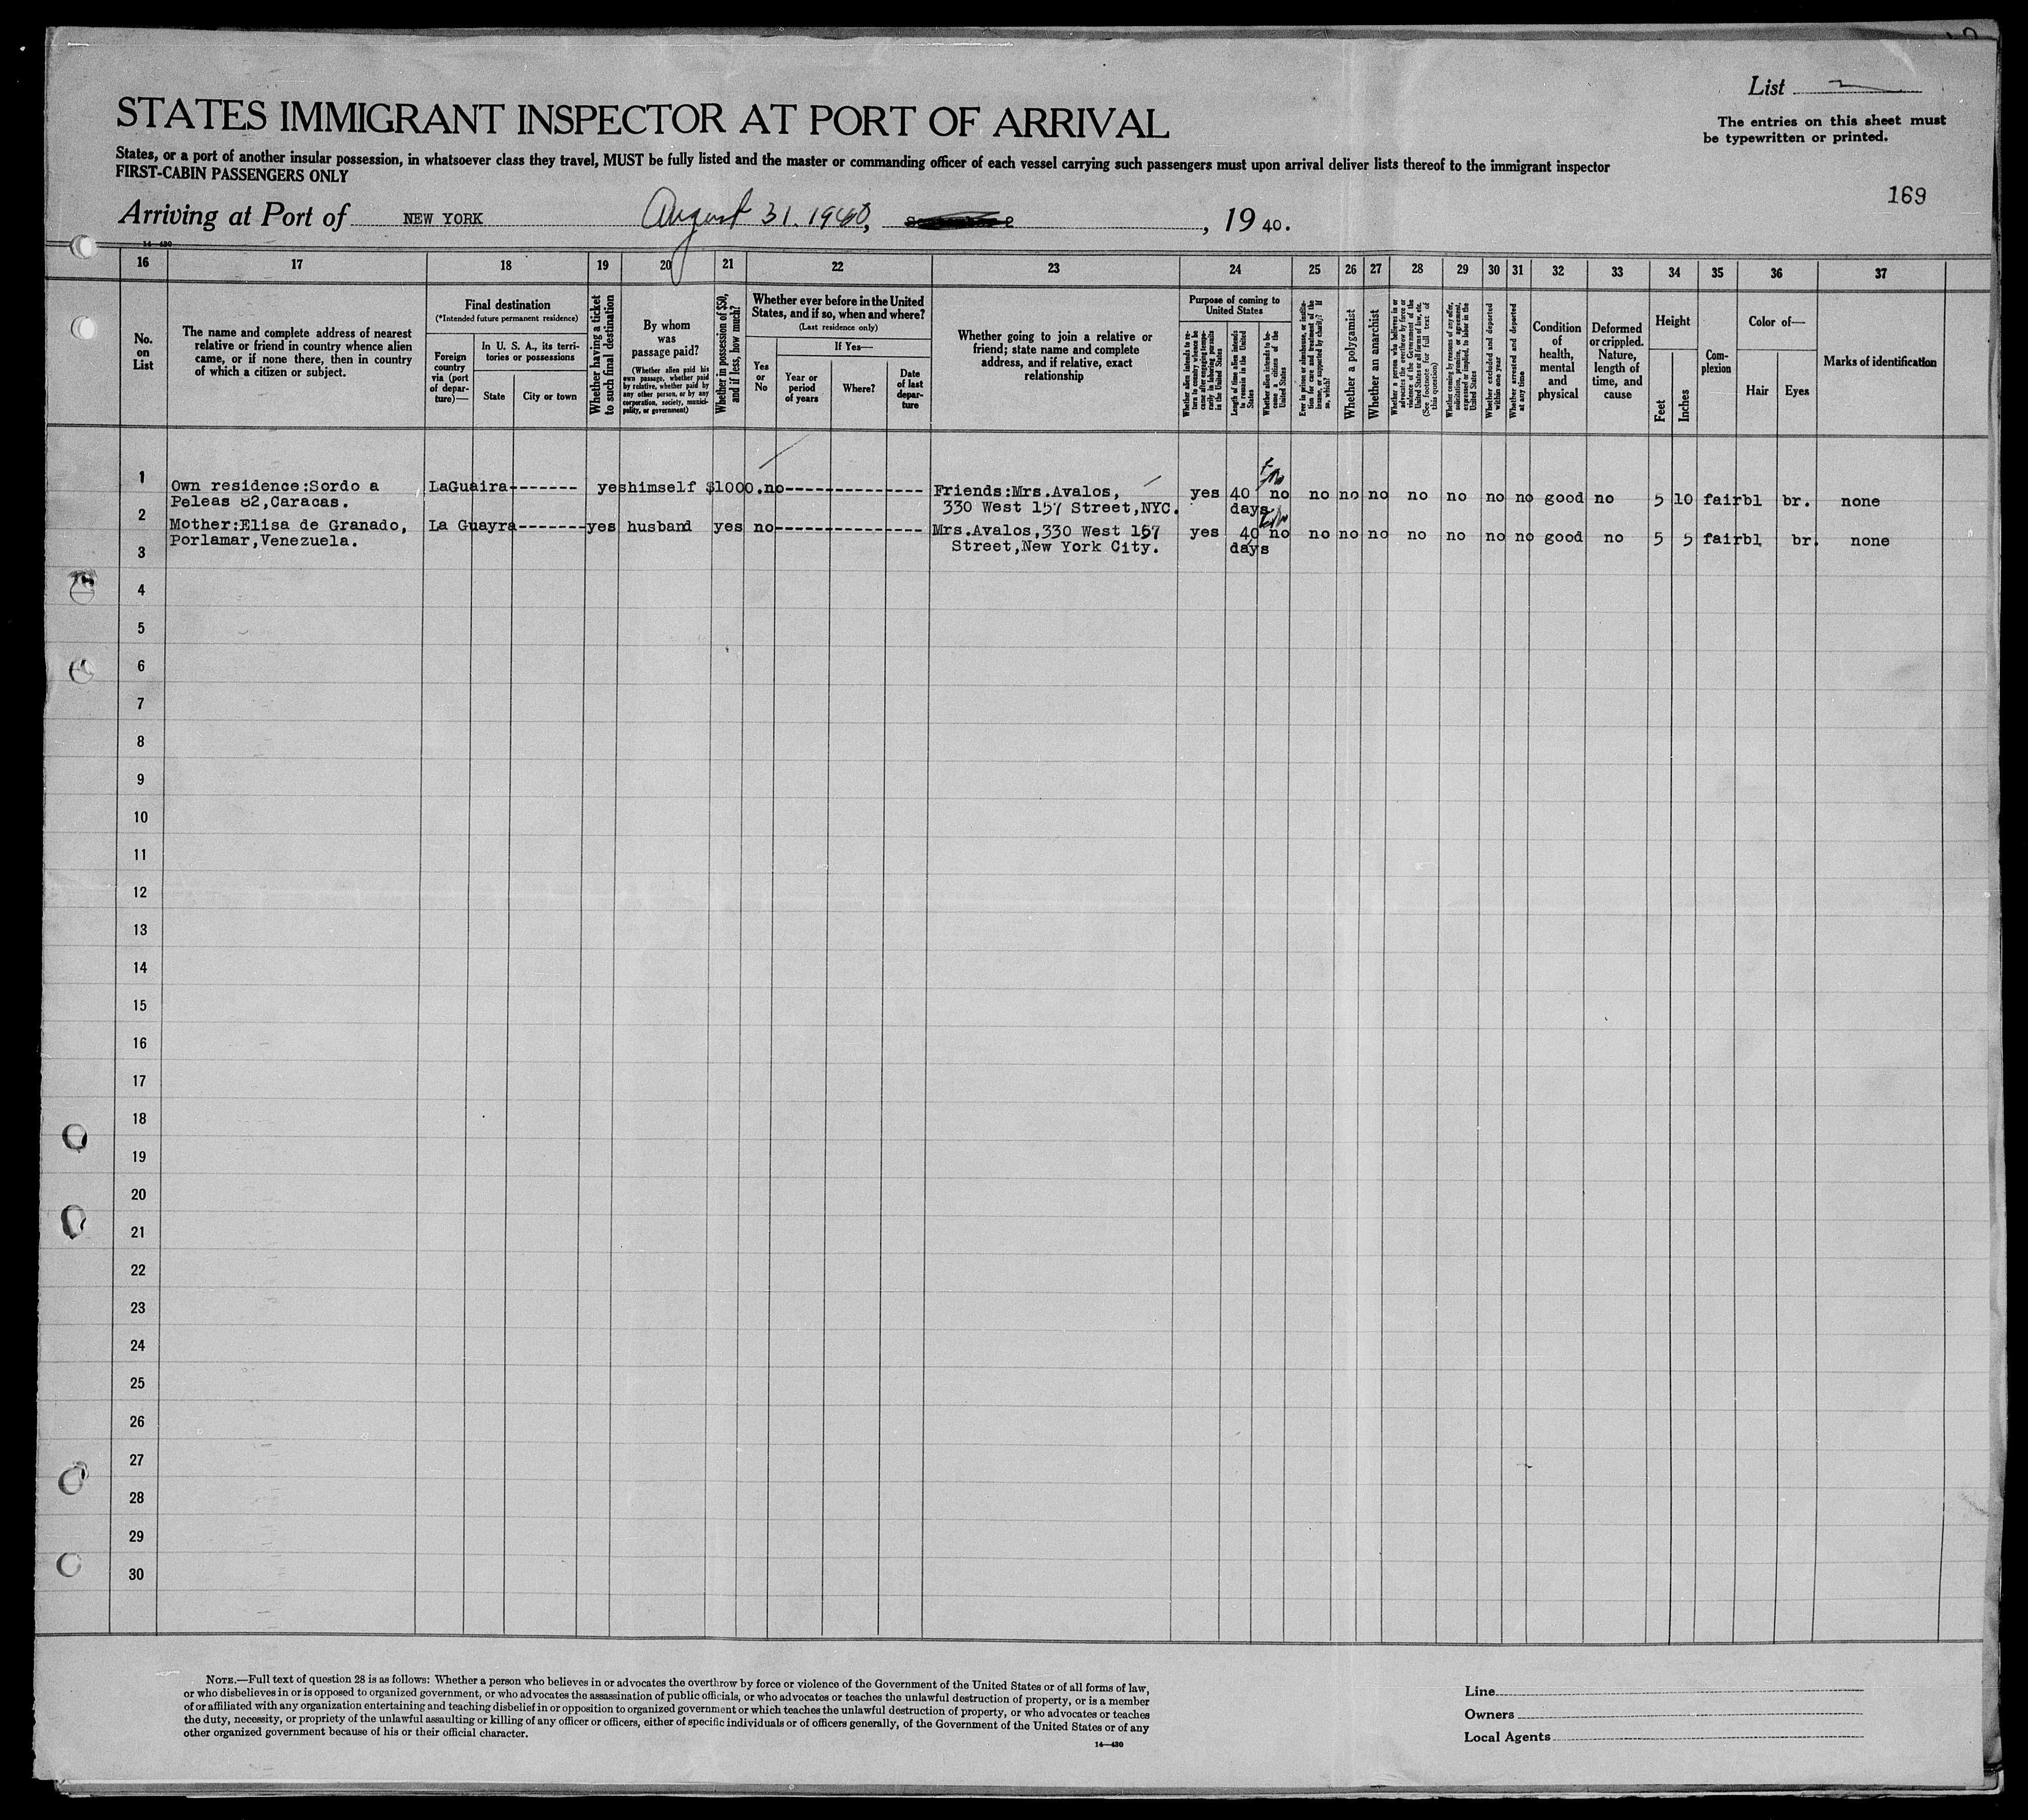 List
STATES IMMIGRANT INSPECTOR AT PORT OF ARRIVAL
The entries on this sheet must
be typewritten or printed.
States, or a port of another insular possession, in whatsoever class they travel, MUST be fully listed and the master or commanding officer of each vessel carrying such passengers must upon arrival deliver lists thereof to the immigrant inspector
FIRST-CABIN PASSENGERS ONLY
169
Arriving at Port of NEW YORK August 31. 1940, , 19 40.
14—430
16 17 18 19 20 21 22 23 24 25 26 27 28 29 30 31 32 33 34 35 36 37
No.
on
List
The name and complete address of nearest
relative or friend in country whence alien
came, or if none there, then in country
of which a citizen or subject.
Final destination
(*Intended future permanent residence)
Foreign
country
via (port
of depar-
ture)—
In U. S. A., its terri-
tories or possessions
State
City or town
Whether having a ticket
to such final destination
By whom
was
passage paid?
(Whether alien paid his
own passage, whether paid
by relative, whether paid by
any other person, or by any
corporation, society, munici-
pality, or government)
Whether in possession of $50,
and if less, how much?
Whether ever before in the United
States, and if so, when and where?
(Last residence only)
Yes
or
No
If Yes—
Year or
period
of years
Where?
Date
of last
depar-
ture
Whether going to join a relative or
friend; state name and complete
address, and if relative, exact
relationship
Purpose of coming to
United States
Whether alien intends to re-
turn to country whence he
came after engaging tempo-
rarily in laboring pursuits
in the United States
Length of time alien intends
to remain in the United
States
Whether alien intends to be-
come a citizen of the
United States
Ever in prison or almshouse, or institu-
tion for care and treatment of the
insane, or supported by charity? If
so, which?
Whether a polygamist
Whether an anarchist
Whether a person who believes in or
advocates the overthrow by force or
violence of the Government of the
United States or all forms of law, etc.
(See footnote for full text of
this question)
Whether coming by reasons of any offer,
solicitation, promise, or agreement,
expressed or implied, to labor in the
United States
Whether excluded and deported
within one year
Whether arrested and deported
at any time
Condition
of
health,
mental
and
physical
Deformed
or crippled.
Nature,
length of
time, and
cause
Height
Feet
Inches
Com-
plexion
Color of—
Hair
Eyes
Marks of identification
1 Own residence:Sordo a LaGuaira------- yes himself $1000. no--------------- Friends:Mrs.Avalos, yes 40 no no no no no no no no good no 5 10 fair bl br. none
Peleas 82,Caracas. 330 West 157 Street,NYC. days
2 Mother:Elisa de Granado, La Guayra-------yes husband yes no--------------- Mrs.Avalos,330 West 157 yes 40 no no no no no no no no good no 5 5 fair bl br. none
Porlamar,Venezuela. Street,New York City. days
3
4
5
6
7
8
9
10
11
12
13
14
15
16
17
18
19
20
21
22
23
24
25
26
27
28
29
30
NOTE.—Full text of question 28 is as follows: Whether a person who believes in or advocates the overthrow by force or violence of the Government of the United States or of all forms of law,
or who disbelieves in or is opposed to organized government, or who advocates the assassination of public officials, or who advocates or teaches the unlawful destruction of property, or is a member
of or affiliated with any organization entertaining and teaching disbelief in or opposition to organized government or which teaches the unlawful destruction of property, or who advocates or teaches
the duty, necessity, or propriety of the unlawful assaulting or killing of any officer or officers, either of specific individuals or of officers generally, of the Government of the United States or of any
other organized government because of his or their official character.
14—430
Line
Owners
Local Agents